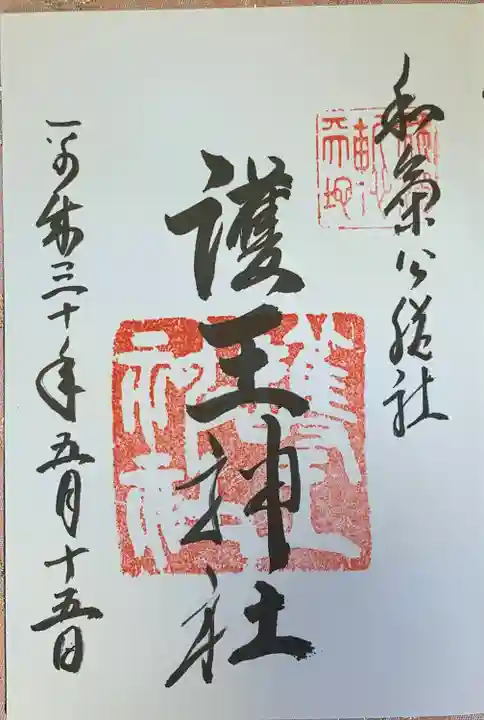 和氣公総社
護王神社
平成三十年五月十五日
護王神社